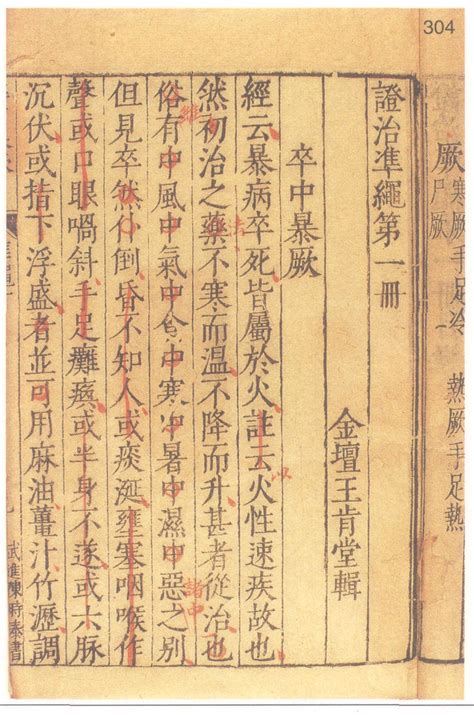 304
厥
寒厥手足冷 熱厥手足熱
尸厥
證治準繩第一冊
金壇王肯堂輯
卒中暴厥
經云暴病卒死皆屬於火註云火性速疾故也
然初治之藥不寒而溫不降而升甚者從治也
俗有中風中氣中食中寒中暑中濕中惡之別
但見卒然仆倒昏不知人或痰涎壅塞咽喉作
聲或口眼喎斜手足癱瘓或半身不遂或六脉
沉伏或指下浮盛者並可用麻油薑汁竹瀝調
武進陳時泰書